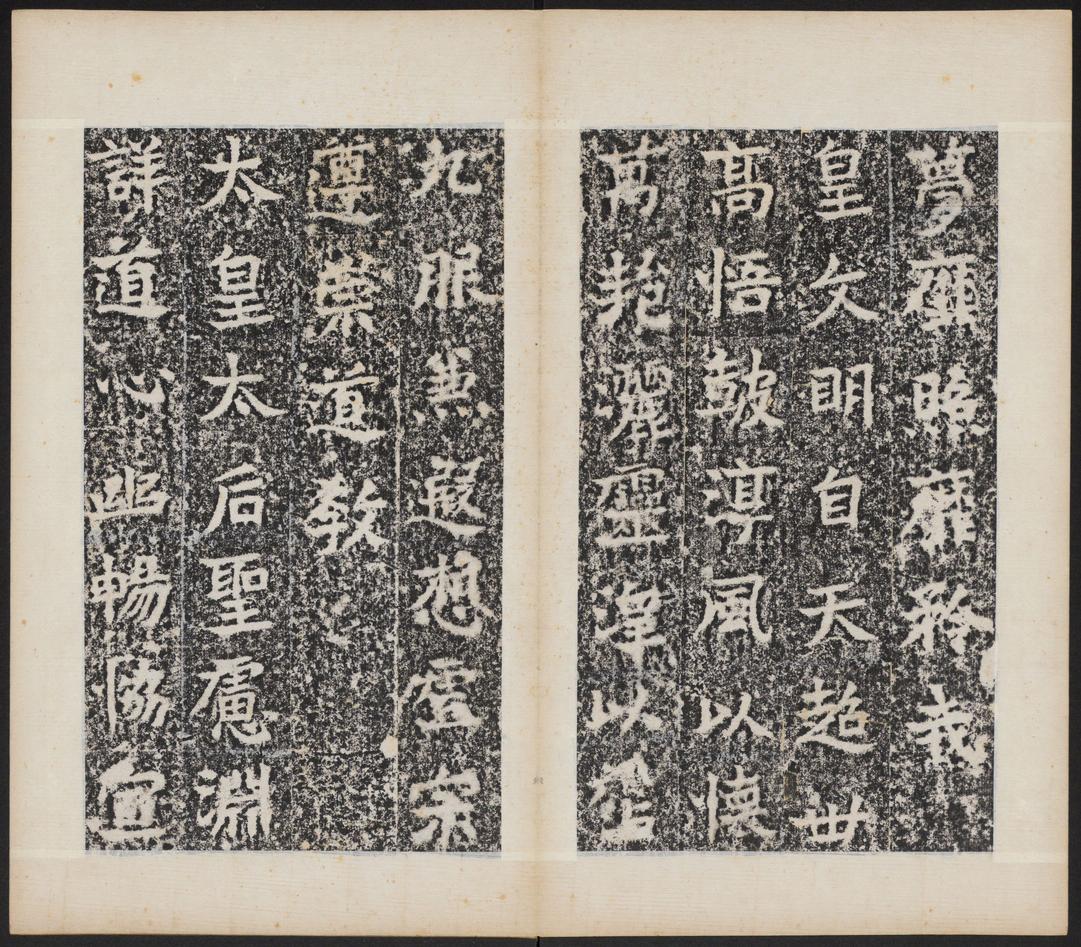 夢照靡矜我
皇文明自天超世
高悟皷淳風以懷
萬灑靈澤以
九服兼遐想虛宗
遵崇道教
太皇太后聖慮淵
詳道心幽暢協宣